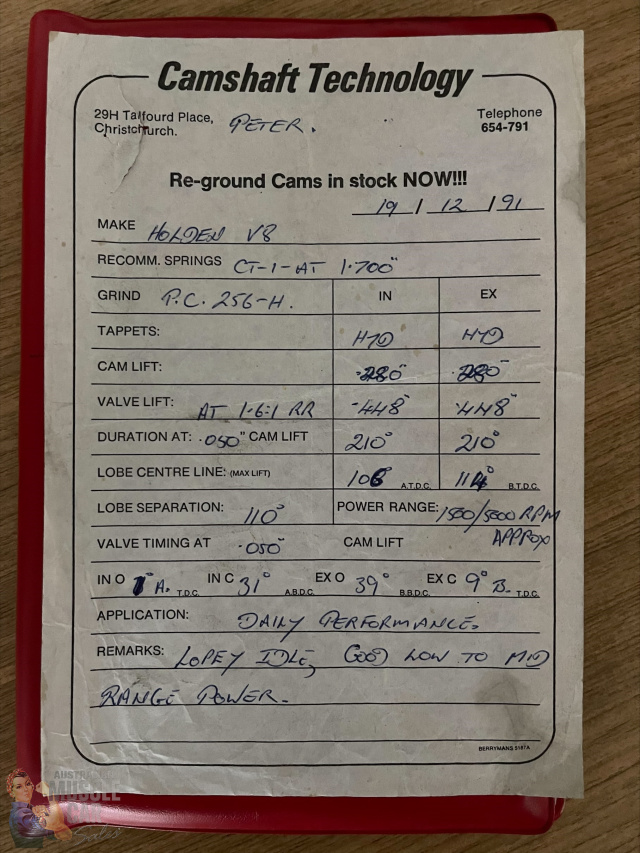 Camshaft Technology
29H Talfourd Place, Christchurch. PETER. Telephone 654-791
Re-ground Cams in stock NOW!!!
19 / 12 / 91
MAKE HOLDEN V8
RECOMM. SPRINGS CT-1-AT 1.700"
GRIND P.C. 256-H. IN EX
TAPPETS: HYD HYD
CAM LIFT: .280" .280"
VALVE LIFT: AT 1.6:1 RR .448" .448"
DURATION AT: .050" CAM LIFT 210° 210°
LOBE CENTRE LINE: (MAX LIFT) 106° A.T.D.C. 114° B.T.D.C.
LOBE SEPARATION: 110° POWER RANGE: 1500/5000 RPM
VALVE TIMING AT .050" CAM LIFT APPROX
IN O 1° A. T.D.C. IN C 31° A.B.D.C. EX O 39° B.B.D.C. EX C 9° B. T.D.C.
APPLICATION: DAILY PERFORMANCE.
REMARKS: LOPEY IDLE, GOOD LOW TO MID
RANGE POWER.
BERRYMANS 5187A
MUSCLE